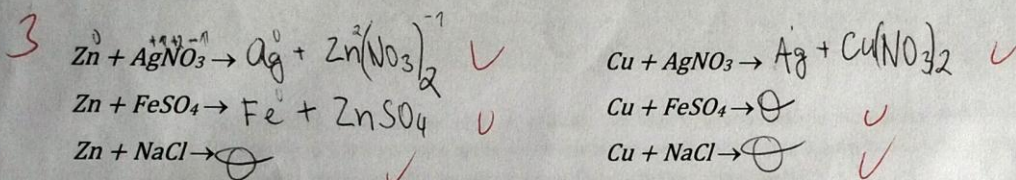 3
Zn + AgNO₃ → Ag + Zn(NO₃)₂
Zn + FeSO₄ → Fe + ZnSO₄
Zn + NaCl → ∅
Cu + AgNO₃ → Ag + Cu(NO₃)₂
Cu + FeSO₄ → ∅
Cu + NaCl → ∅